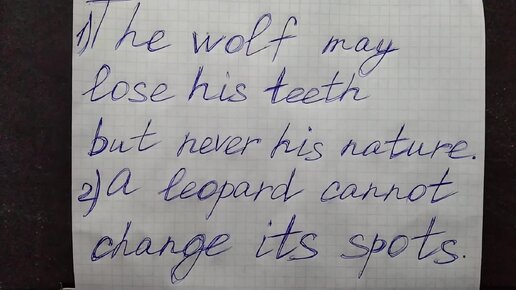 1) The wolf may
lose his teeth
but never his nature.
2) a leopard cannot
change its spots.